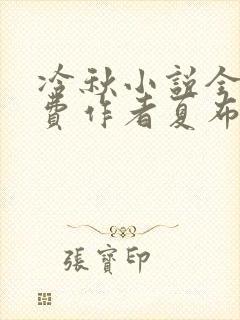 冷秋小説全
費作者夏布
張寶印